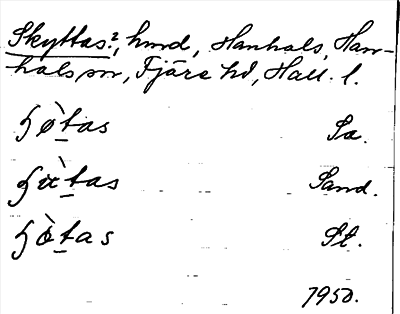 Skyttas?, hmd, Hanhals, Han-
hals sn, Fjäre hd, Hall. l.
ɧø̀tas Sa.
ɧæ̀tas Sand.
ɧò̀tas St.
1950.